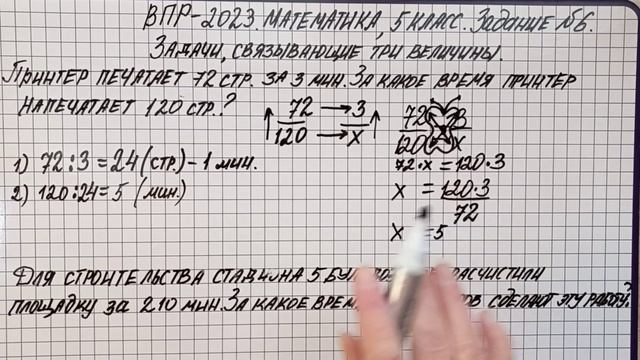 ВПР-2023. МАТЕМАТИКА, 5 КЛАСС. ЗАДАНИЕ №6.
ЗАДАЧИ, СВЯЗЫВАЮЩИЕ ТРИ ВЕЛИЧИНЫ.
ПРИНТЕР ПЕЧАТАЕТ 72 СТР. ЗА 3 МИН. ЗА КАКОЕ ВРЕМЯ ПРИНТЕР
НАПЕЧАТАЕТ 120 СТР.?
72 → 3
120 → X
1) 72:3=24 (СТР.) - 1 МИН.
2) 120:24=5 (МИН.)
72 3
120 X
72·X = 120·3
X = 120·3
72
X = 5
ДЛЯ СТРОИТЕЛЬСТВА СТАДИОНА 5 РАСЧИСТИЛИ
ПЛОЩАДКУ ЗА 210 МИН. ЗА КАКОЕ СДЕЛАЮТ ЭТУ РАБОТУ?